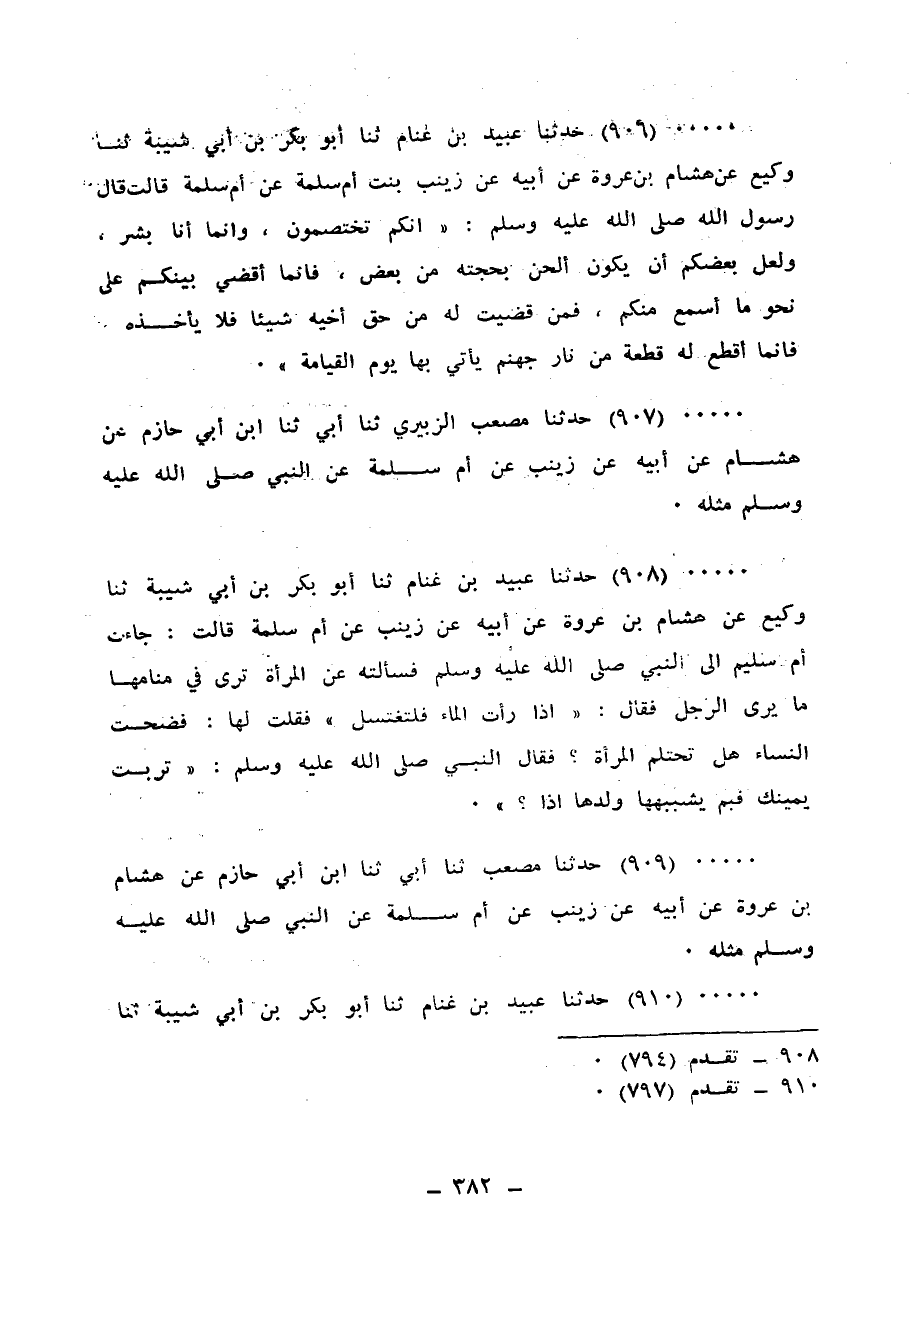 ..... (٩٠٦) حدثنا عبيد بن غنام ثنا أبو بكر بن أبي شيبة ثنا
وكيع عن هشام بن عروة عن أبيه عن زينب بنت أم سلمة عن أم سلمة قالت قال
رسول الله صلى الله عليه وسلم : « انكم تختصمون ، وانما أنا بشر ،
ولعل بعضكم أن يكون ألحن بحجته من بعض ، فانما أقضي بينكم على
نحو ما أسمع منكم ، فمن قضيت له من حق أخيه شيئا فلا يأخذه
فانما أقطع له قطعة من نار جهنم يأتي بها يوم القيامة » .
..... (٩٠٧) حدثنا مصعب الزبيري ثنا أبي ثنا ابن أبي حازم عن
هشام عن أبيه عن زينب عن أم سلمة عن النبي صلى الله عليه
وسلم مثله .
..... (٩٠٨) حدثنا عبيد بن غنام ثنا أبو بكر بن أبي شيبة ثنا
وكيع عن هشام بن عروة عن أبيه عن زينب عن أم سلمة قالت : جاءت
أم سليم الى النبي صلى الله عليه وسلم فسألته عن المرأة ترى في منامها
ما يرى الرجل فقال : « اذا رأت الماء فلتغتسل » فقلت لها : فضحت
النساء هل تحتلم المرأة ؟ فقال النبي صلى الله عليه وسلم : « تربت
يمينك فبم يشبهها ولدها اذا ؟ » .
..... (٩٠٩) حدثنا مصعب ثنا أبي ثنا ابن أبي حازم عن هشام
بن عروة عن أبيه عن زينب عن أم سلمة عن النبي صلى الله عليه
وسلم مثله .
..... (٩١٠) حدثنا عبيد بن غنام ثنا أبو بكر بن أبي شيبة ثنا
٩٠٨ ـ تقدم (٧٩٤) .
٩١٠ ـ تقدم (٧٩٧) .
ـ ٣٨٢ ـ